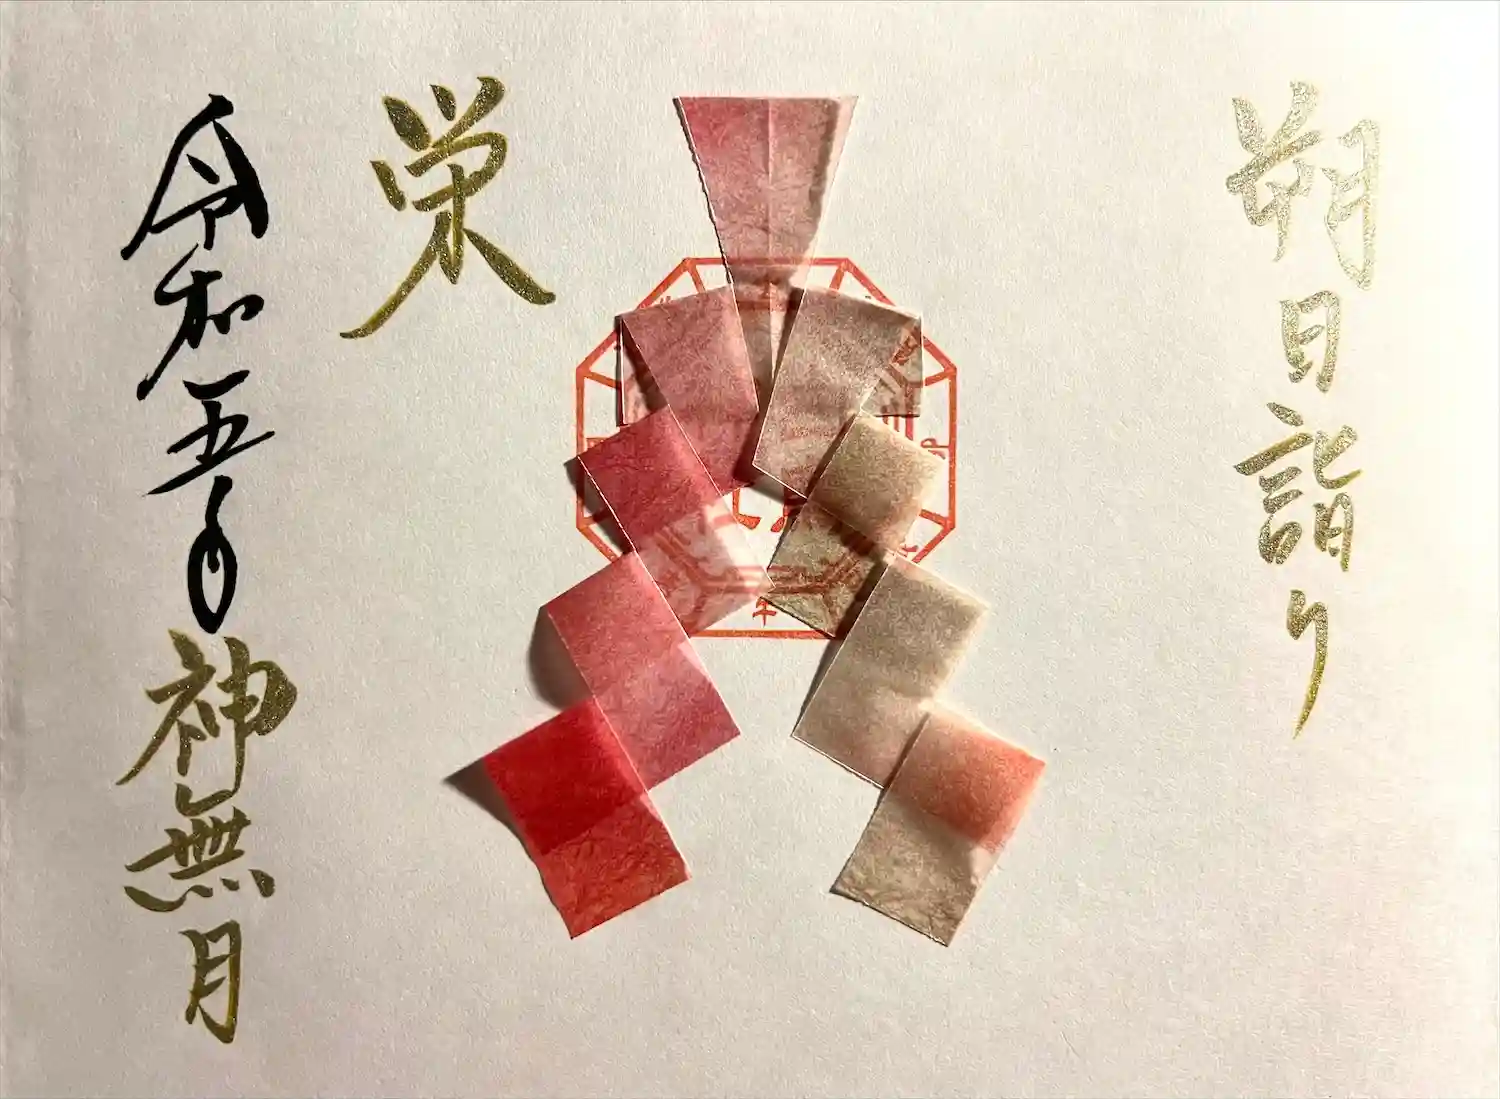 朔日詣り
栄
令和五年神無月